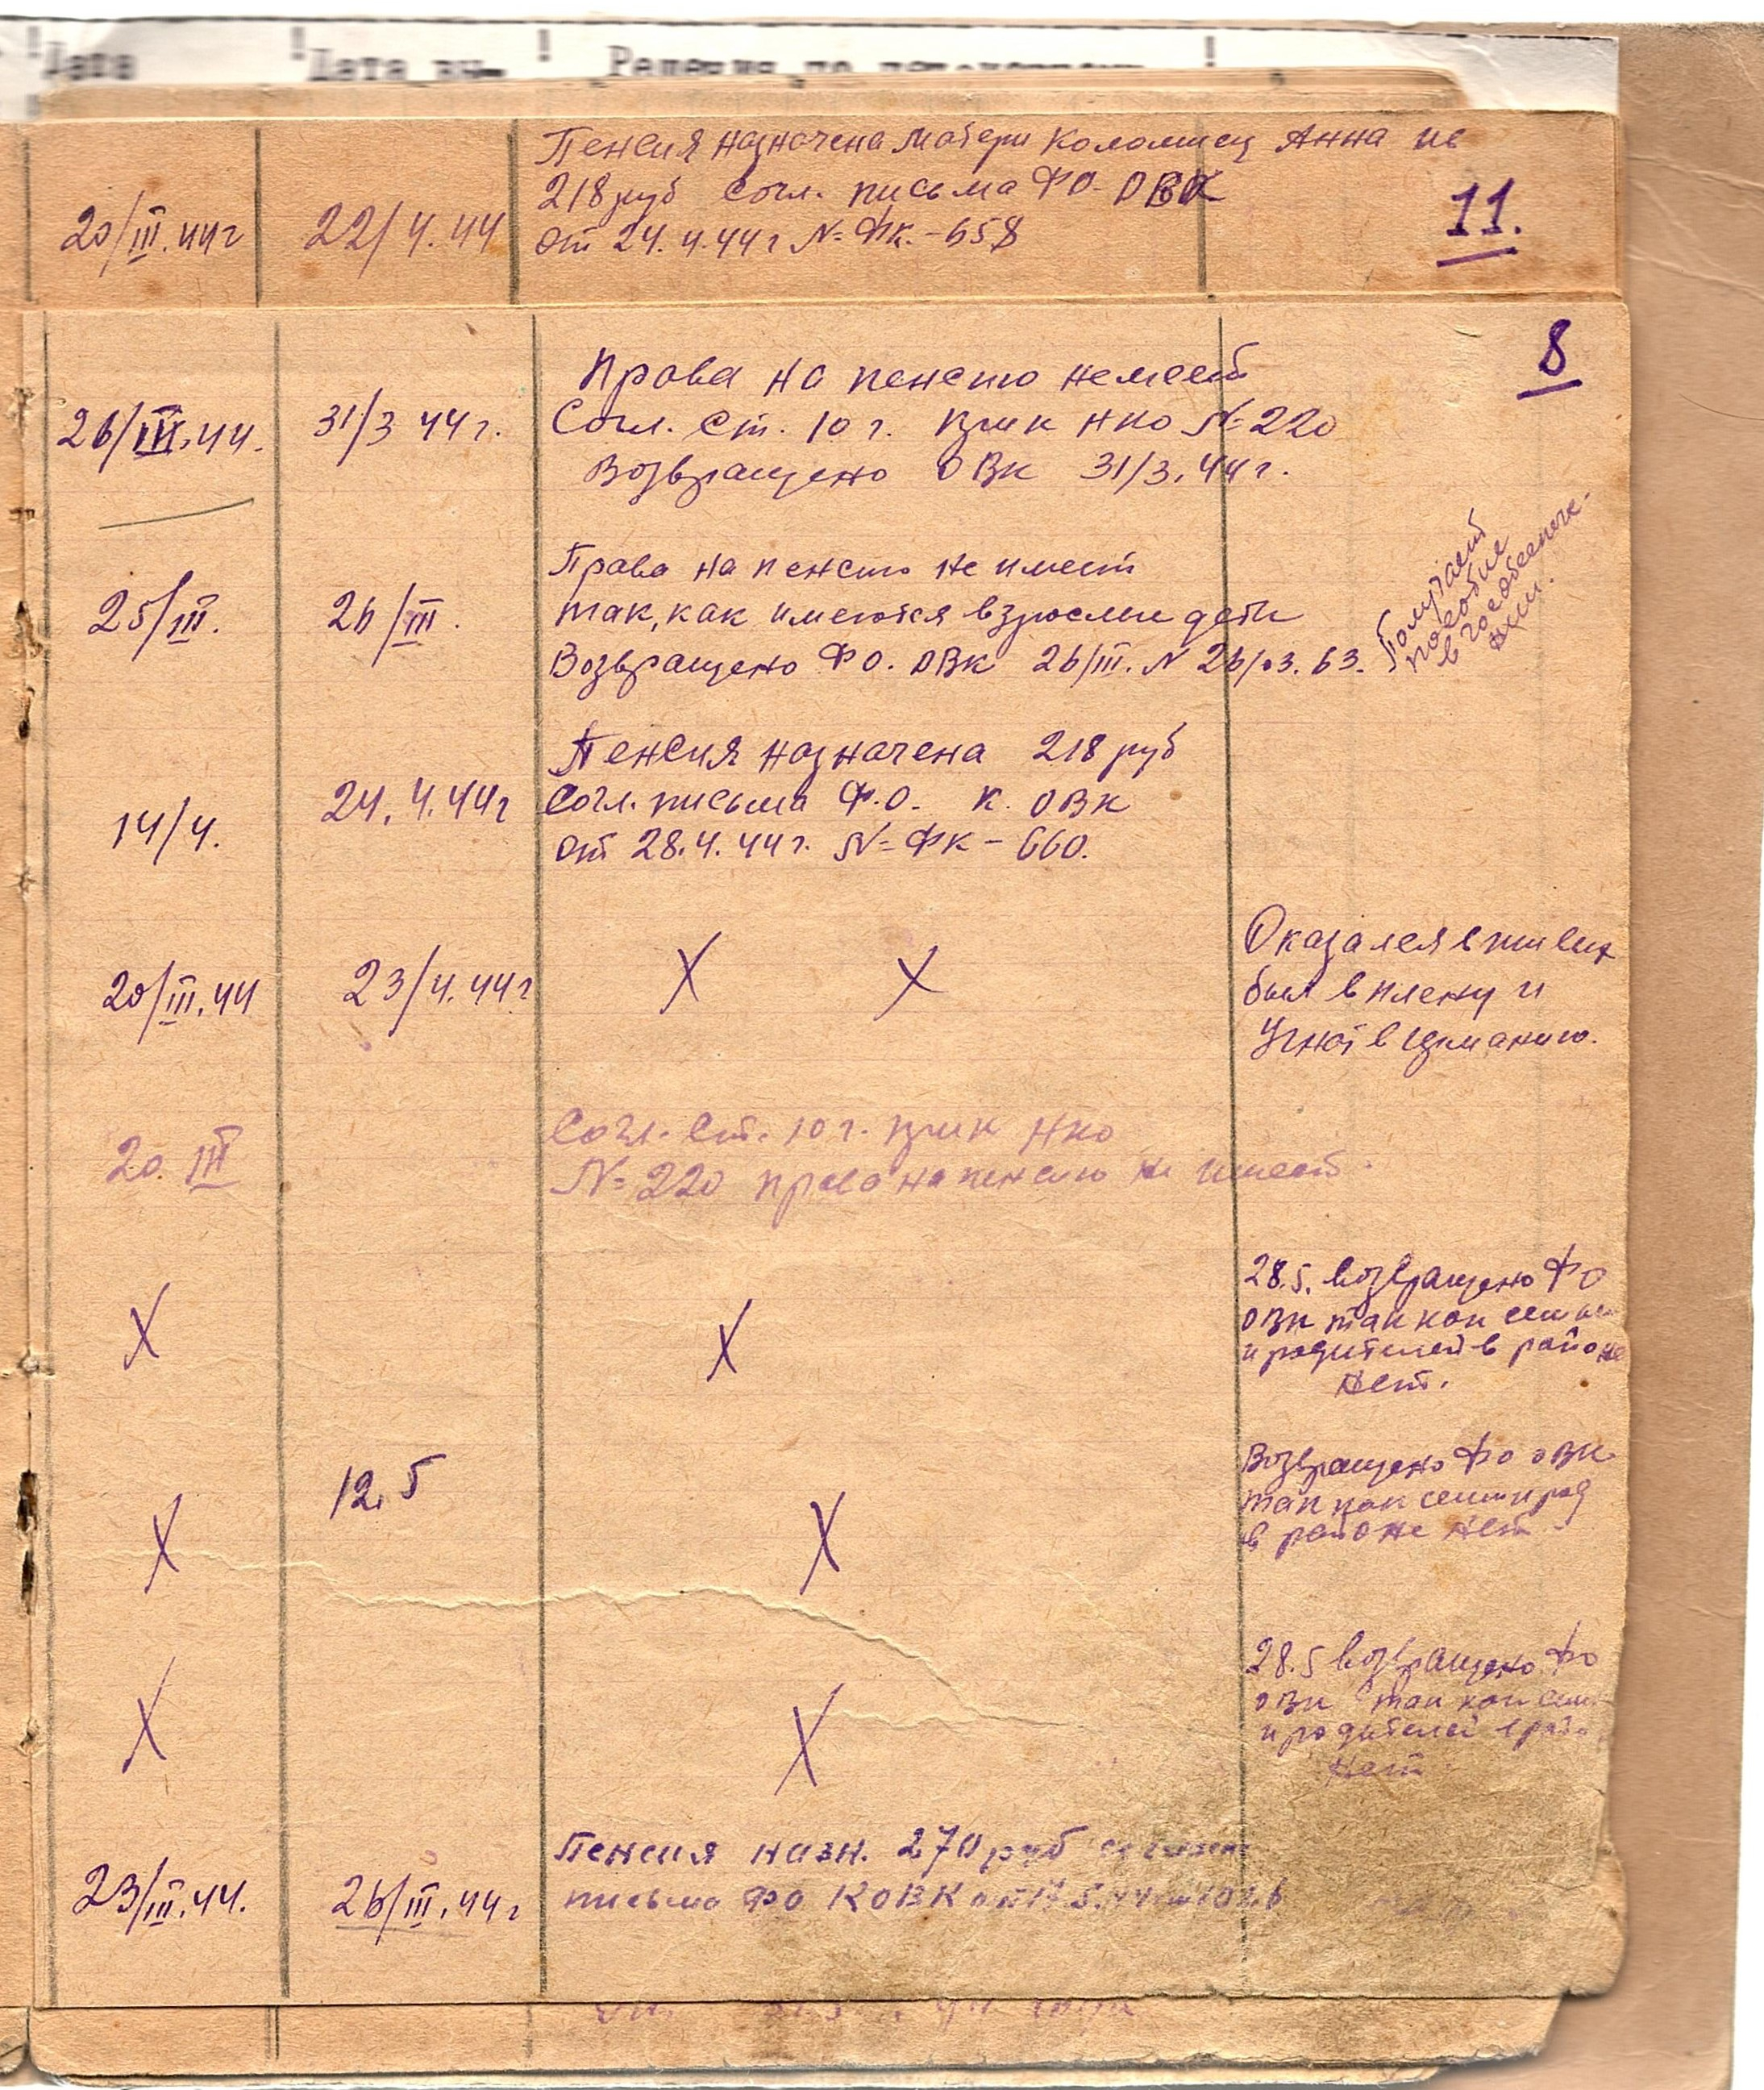 Дата
Дата вы-
20/III.44г
22/4.44
Пенсия назначена матери Коломиец Анна
218 руб согл. письма ФО-ОВК
от 24.4.44г №ФК.-658
11.
8
26/III.44.
31/3 44г.
Права на пенсию немеет
Согл. ст. 10 г. прик НКО №220
Возвращено ОВК 31/3.44г.
25/III.
26/III.
Права на пенсию не имеет
так, как имеются взрослые дети
Возвращено ФО. ОВК 26/III. N 26/03.63.
Получает
пособие
в гособеспече-
нии.
14/4.
24.4.44г
Пенсия назначена 218 руб
Согл. письма Ф.О. К. ОВК
от 28.4.44г. №ФК-660.
20/III.44
23/4.44г
X X
Оказался в живых
был в плену и
угнат в германию.
20. III
Согл. ст. 10 г. прик НКО
№220 права на пенсию не имеет.
X
X
28.5. возвращено ФО
ОВК так как семьи
и родителей в районе
нет.
X
12.5
X
Возвращено ФО ОВК
так как семьи и род
в районе нет.
X
X
28.5 возвращено ФО
ОВК так как сем
и родителей в рай
нет.
23/III.44.
26/III.44г
Пенсия назн. 270 руб
письма ФО КОВК от 17.5.44